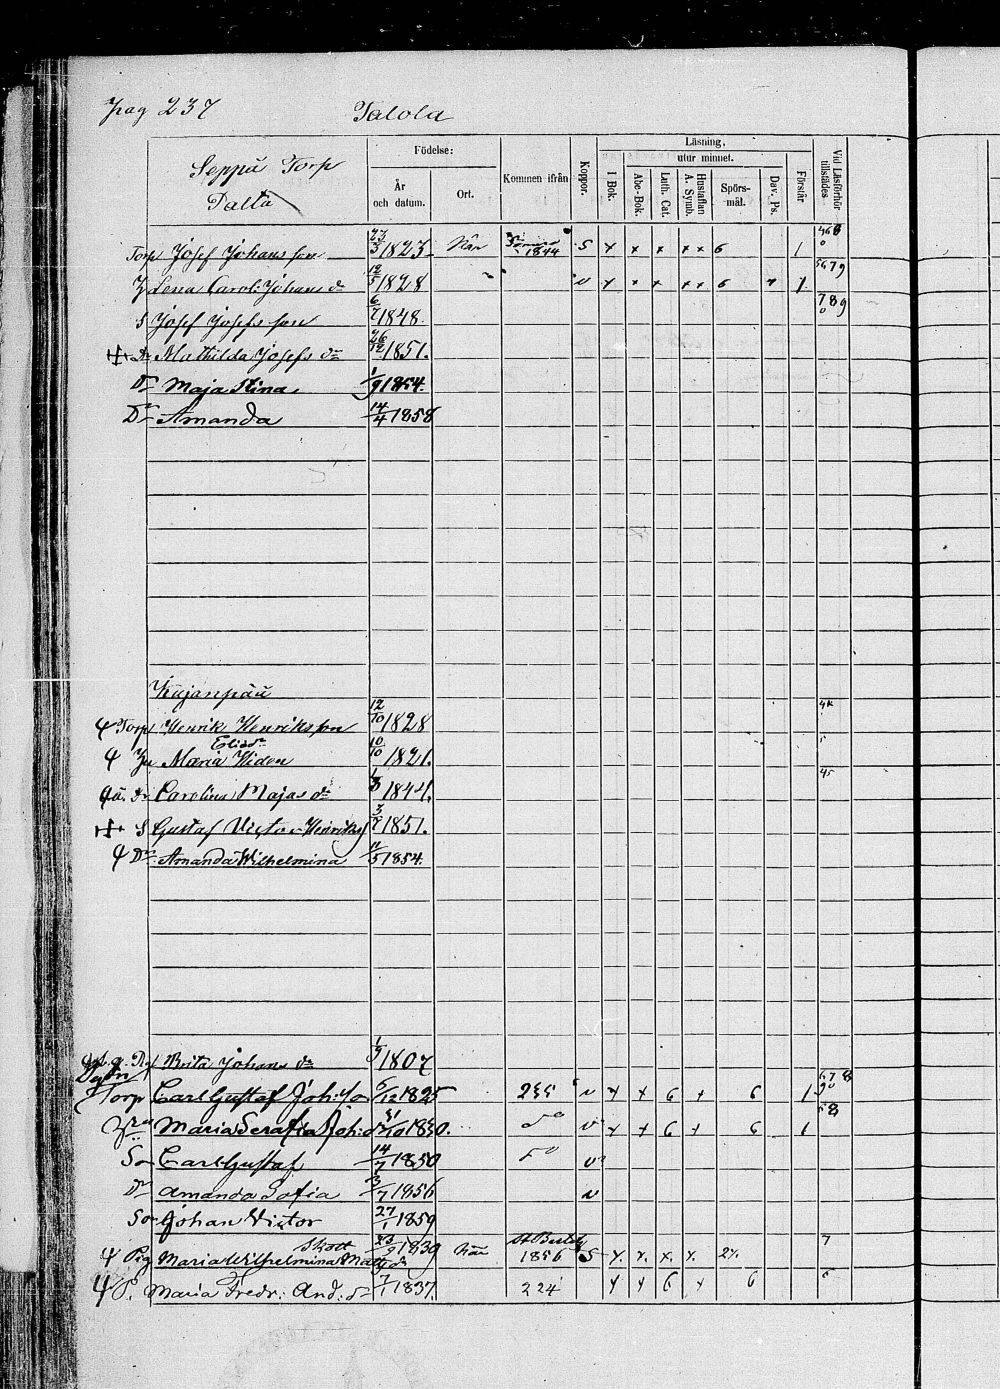 pag 237 Talola
Seppä Torp
Palta
Födelse:
År och datum.
Ort.
Kommen ifrån
Koppor.
Läsning,
utur minnet.
I Bok.
Abc-Bok.
Luth. Cat.
Hustaflan A. Symb.
Spörs-mål.
Dav. Ps.
Förstår
Vid Läsförhör tillstädes
Torp Josef Johansson 23/3 1823 1844 S x x x x x 6 1
Lena Carol: Johans dr 1828 v x x x x x 6 x 1 5679
S Josef Josefsson 6/7 1848. 789
Dr Mathilda Josefs dr 26/12 1851.
Dr Maja Stina 1/9 1854.
Dr Amanda 14/4 1858
Kujanpää
Torp Henrik Henriksson 12/10 1828
Elisdr
Maria Widen 10/10 1821.
Carolina Majas dr 1844. 45
S Gustaf Victor Henriks 3/7 1851.
Dr Amanda Wilhelmina 1854.
Brita Johans dr 1/9 1807
Torp Carl Gustaf Joh: So 6/12 1825 235 v x x 6 x 6 1 678
Maria Serafia Joh: dr 31/10 1830. do v x x 6 x 6 1 58
So Carl Gustaf 14/7 1850 do v
Dr Amanda Sofia 3/7 1856 v
So Johan Victor 27/1 1859
Pig Maria Wilhelmina Matts dr 23/9 1839 1856 S x. x. x. x. 2x. 7
P. Maria Fredr: And: dr 7/1 1837. 224 x x 6 x 6